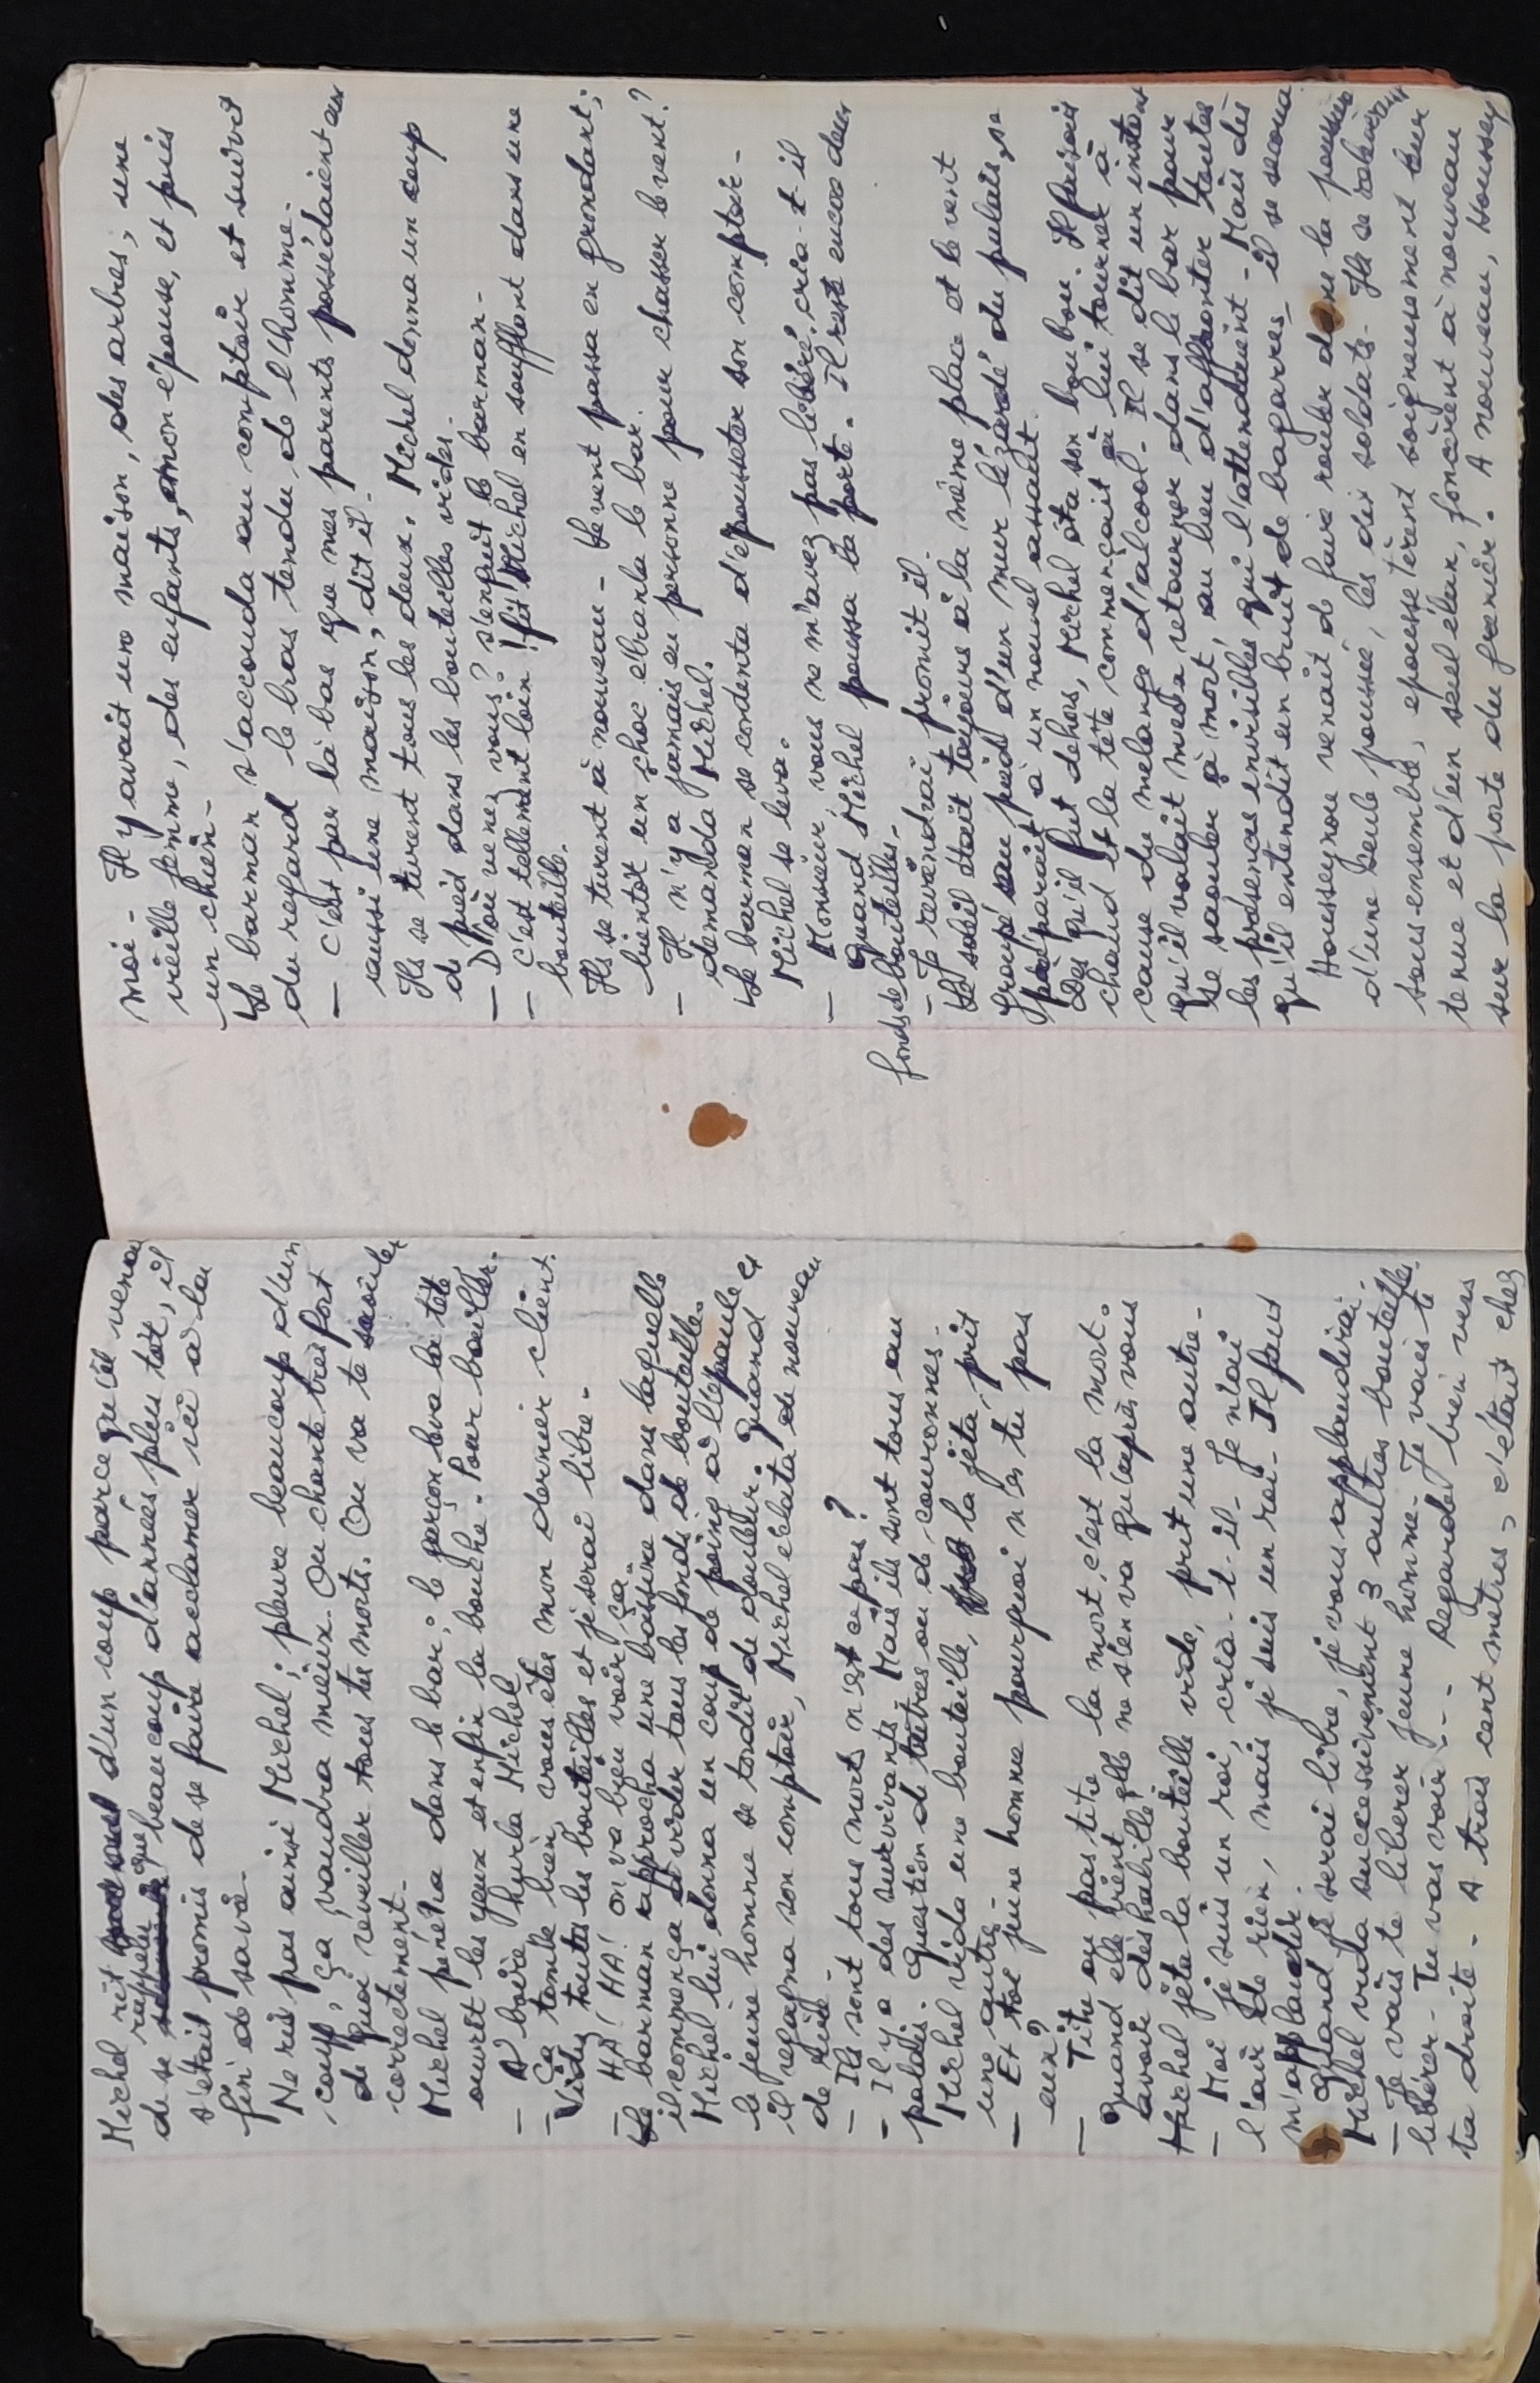 Michel rit d'un coup parce qu'il venait
de se rappeler que beaucoup d'années plus tôt, il
s'était promis de se faire acclamer ici à la
fin de sa vie-
Ne ris pas ainsi Michel; pleure beaucoup d'un
coup, ça vaudra mieux. On chante très fort
de quoi réveiller tous tes morts. On va te saoûler
correctement-
Michel pénétra dans le bar; le garçon leva la tête
ouvrit les yeux et enfin la bouche. Pour bailler.
- A boire, hurla Michel
- Ca tombe bien, vous êtes mon dernier client.
Videz toutes les bouteilles et je serai libre-
- HA! HA! on va bien voir ça-
Le barman approcha une bassine dans laquelle
il commença à vider tous les fonds de bouteille.
Michel lui donna un coup de poing à l'épaule et
le jeune homme se tordit de douleur. Quand
il regagna son comptoir, Michel éclata de nouveau
de rire-
- Ils sont tous morts n'est ce pas?
- Il y a des survivants- Mais ils sont tous au
palais. Question de titres ou de couronnes-
Michel vida une bouteille, la jeta, prit
une autre-
- Et toi jeune homme pourquoi n'es tu pas
eux?
- Titre ou pas titre la mort, c'est la mort.
Quand elle vient, elle ne s'en va qu'après vous
avoir déshabillé!
Michel jeta la bouteille vide, prit une autre-
- Moi je suis un roi, cria-t-il- Je n'ai
l'air de rien, mais je suis un roi- Il faut
m'applaudir.
- Quand je serai libre, je vous applaudirai.
Michel vida successivement 3 autres bouteilles.
- Je vais te libérer jeune homme- Je vais te
libérer- Tu vas voir-- Regarde bien vers
ta droite- A trois cent mètres, c'était chez
moi- Il y avait une maison, des arbres, une
vieille femme, des enfants, mon épouse, et puis
un chien-
Le barman s'accouda au comptoir et suivit
du regard le bras tendu de l'homme-
- C'est par là bas que mes parents possédaient eux
aussi une maison, dit il-
Ils se turent tous les deux. Michel donna un coup
de pied dans les bouteilles vides.
- D'où venez vous? s'enquit le barman-
- C'est tellement loin! fit Michel en soufflant dans une
bouteille.
Ils se turent à nouveau- Le vent passa en grondant;
bientôt un choc ébranla le bar.
- Il n'y a jamais eu personne pour chasser le vent?
demanda Michel.
Le barman se contenta d'épousseter son comptoir-
Michel se leva.
- Monsieur, vous ne m'avez pas libéré. cria-t-il
Quand Michel poussa la porte. Il reste encore deux
fonds de bouteilles-
- Je reviendrai, promit il.
Le soleil était toujours à la même place et le vent
groupé au pied d'un mur lézardé du palais, se
préparait à un nouvel assaut.
Dès qu'il fut dehors, Michel ôta son boubou. Il faisait
chaud et la tête commençait à lui tourner à
cause du mélange d'alcool- Il se dit un instant
qu'il valait mieux retourner dans le bar pour
se saouler à mort, au lieu d'affronter toutes
les présences invisibles qui l'attendaient- Mais dès
qu'il entendit un bruit de bagarres- il se secoua.
Housseynou venait de faire rouler dans la poussière
d'une seule poussée, les dix soldats- Ils se
tous ensemble, époussetèrent soigneusement leur
tenue et d'un seul élan, foncèrent à nouveau
sur la porte du grenier. A nouveau, Houssey